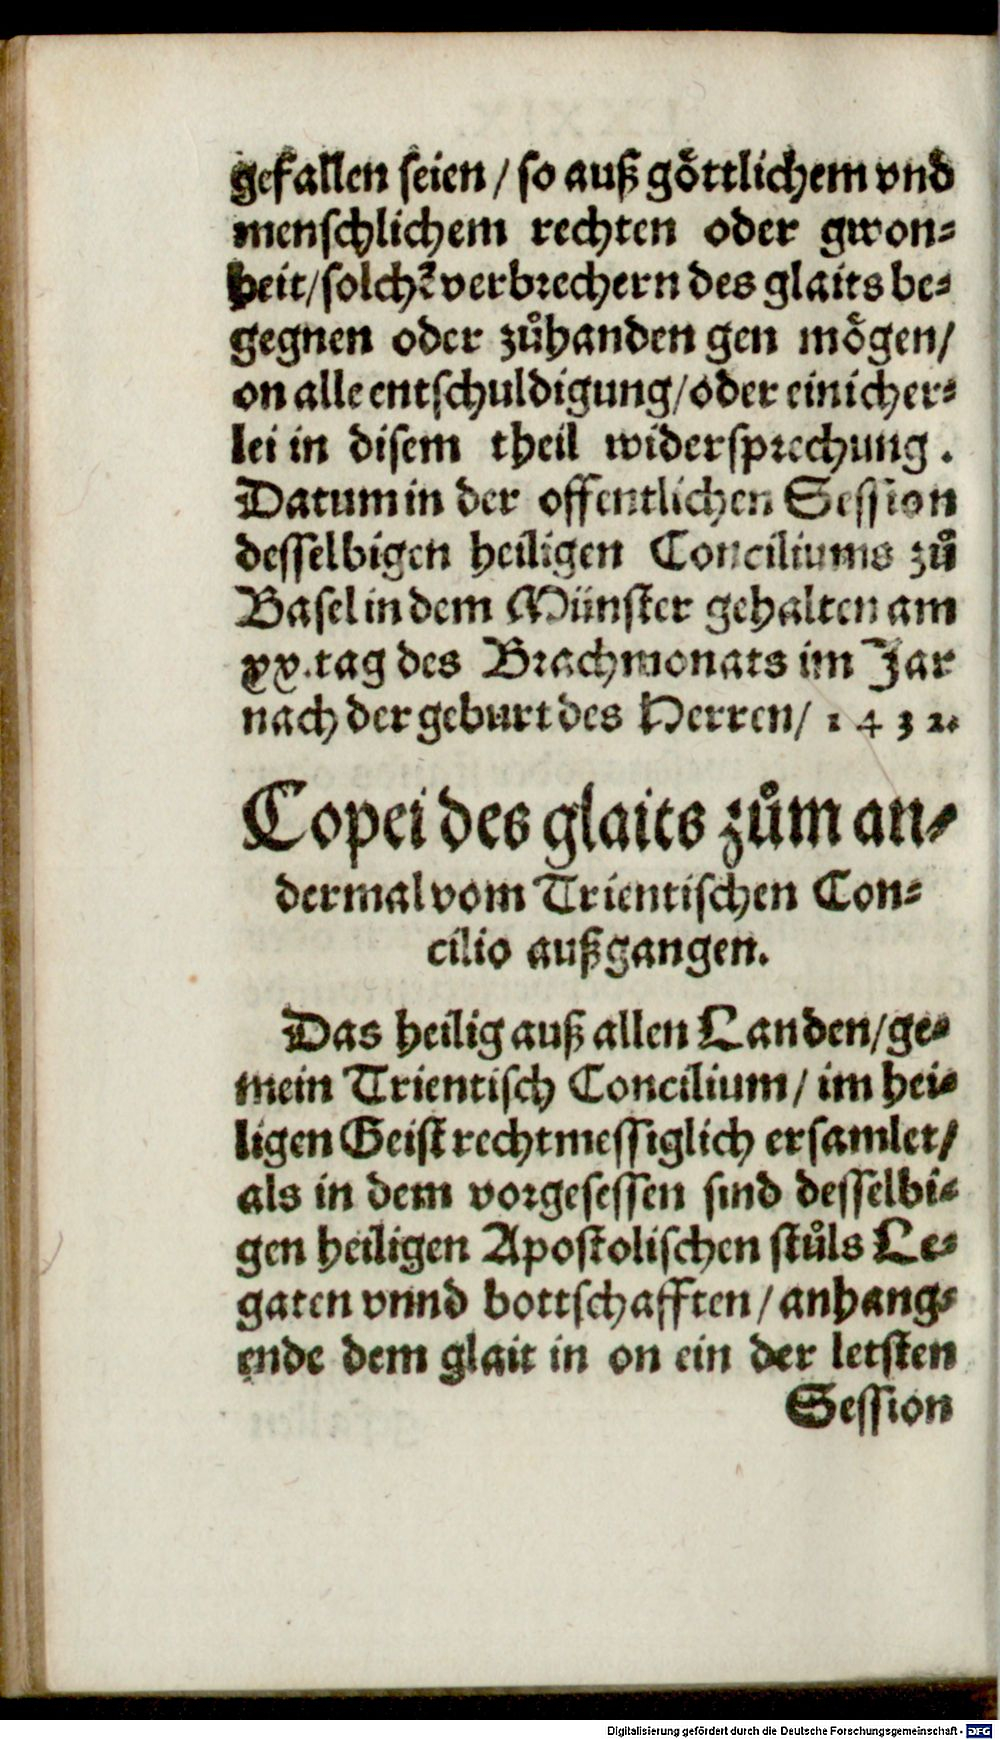 gefallen seien / so auß göttlichem vnd
menschlichem rechten oder gwon-
heit/solchẽ verbrechern des glaits be-
gegnen oder zůhanden gen mögen/
on alle entschuldigung/oder einicher-
lei in disem theil widersprechung.
Datum in der offentlichen Session
desselbigen heiligen Conciliums zů
Basel in dem Münster gehalten am
xx.tag des Brachmonats im Jar
nach der geburt des Herren/ 1432.
Copei des glaits zům an-
dermal vom Trientischen Con-
cilio außgangen.
Das heilig auß allen Landen/ge-
mein Trientisch Concilium/ im hei-
ligen Geist rechtmessiglich ersamlet/
als in dem vorgesessen sind desselbi-
gen heiligen Apostolischen stůls Le-
gaten vnnd bottschafften/anhang-
ende dem glait in on ein der letsten
Session
Digitalisierung gefördert durch die Deutsche Forschungsgemeinschaft - DFG